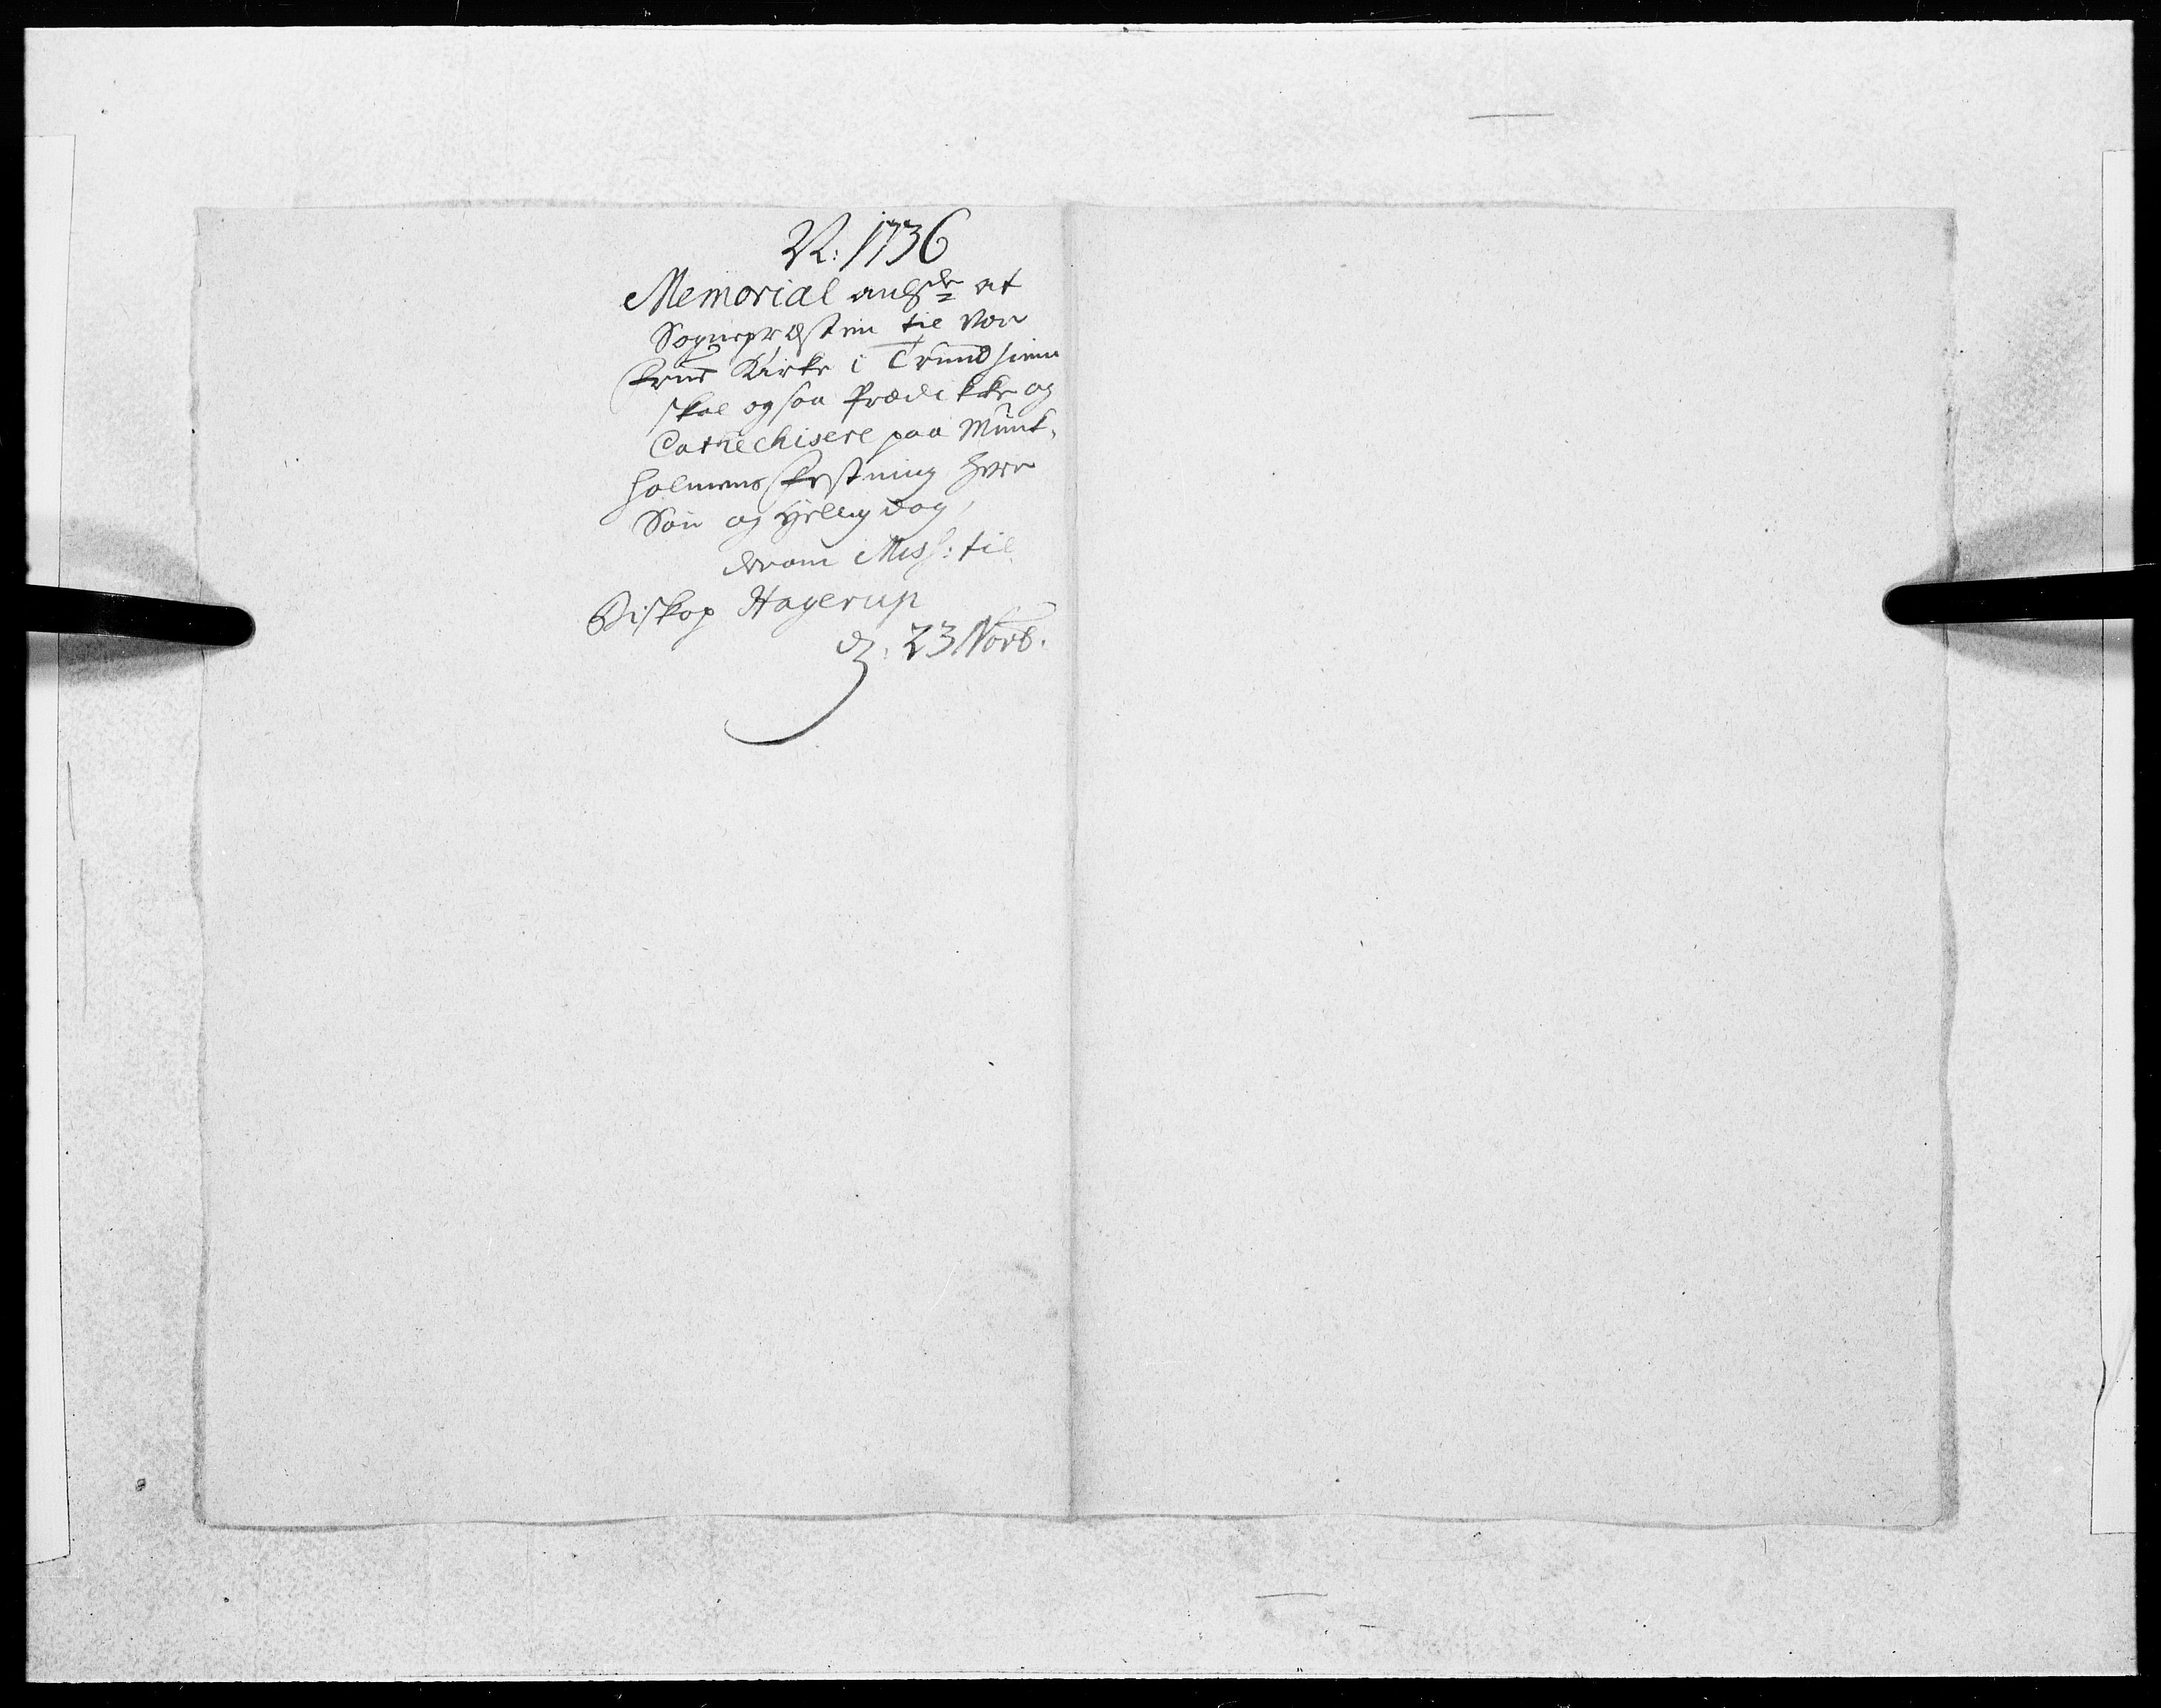 A: 1736
Memorial at
Sognepræsten til Vor
Frue Kirke i Trundhiem
skal og saa Prædikke og
Cathechisere paa Munk,
holmens Festning hver
Søn og Hellig dag,
derom Miss: til
Biskop Hagerup
d: 23 Novb.